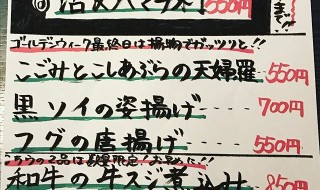 活〆ハマチ刺 550円
まで!!
ゴールデンウィーク最終日は揚物でガッツリと!!
こごみとこしあぶらの天婦羅 550円
黒ソイの姿揚げ 700円
フグの唐揚げ 550円
こちらの2品は数量限定!お早めに!!
和牛の牛スジ煮込み 850円